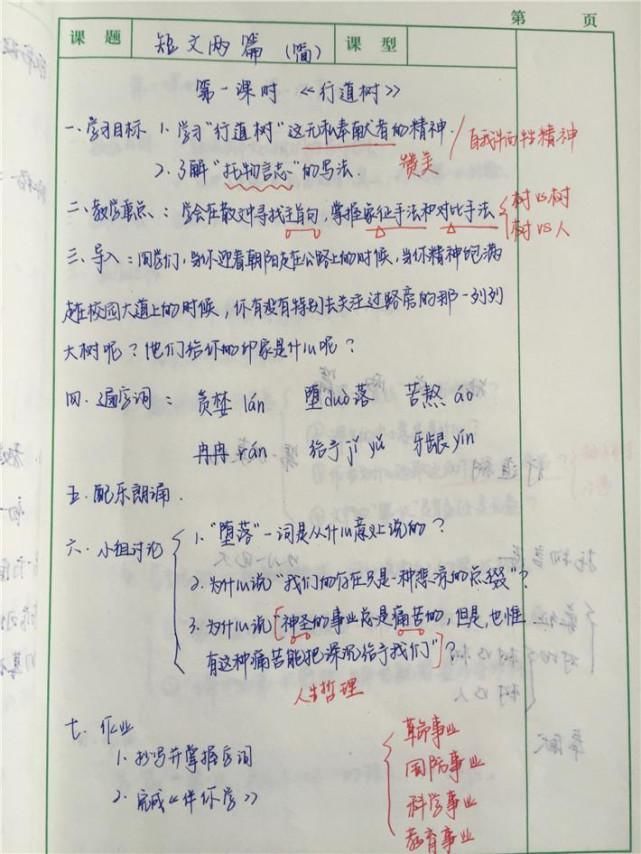 第 页
课题 短文两篇（简） 课型
第一课时 《行道树》
一、学习目标 1. 学习"行道树"这无私奉献者的精神. / 自我牺牲精神
2. 了解"托物言志"的写法. 赞美
二、教学重点：学会在散文中寻找主旨句，掌握象征手法和对比手法 { 树vs树
树vs人
三、导入：同学们，当你迎着朝阳走在公路上的时候，当你精神饱满
走在校园大道上的时候，你有没有特别去关注过路旁的那一列列
大树呢？他们给你的印象是什么呢？
四、通字词： 贪婪 lán 堕duò落 苦熬 áo
冉冉 rǎn 给予 jǐ yǔ 牙龈 yín
五、配乐朗诵.
六、小组讨论 { 1. "堕落"一词是从什么意义上说的？
2. 为什么说"我们的存在只是一种悲凉的点缀"？
3. 为什么说["神圣的事业总是痛苦的，但是，也惟
有这种痛苦能把深沉给予我们"]？
人生哲理
七、作业
1. 抄写并掌握字词
2. 完成《伴你学》
{ 革命事业
国防事业
科学事业
教育事业